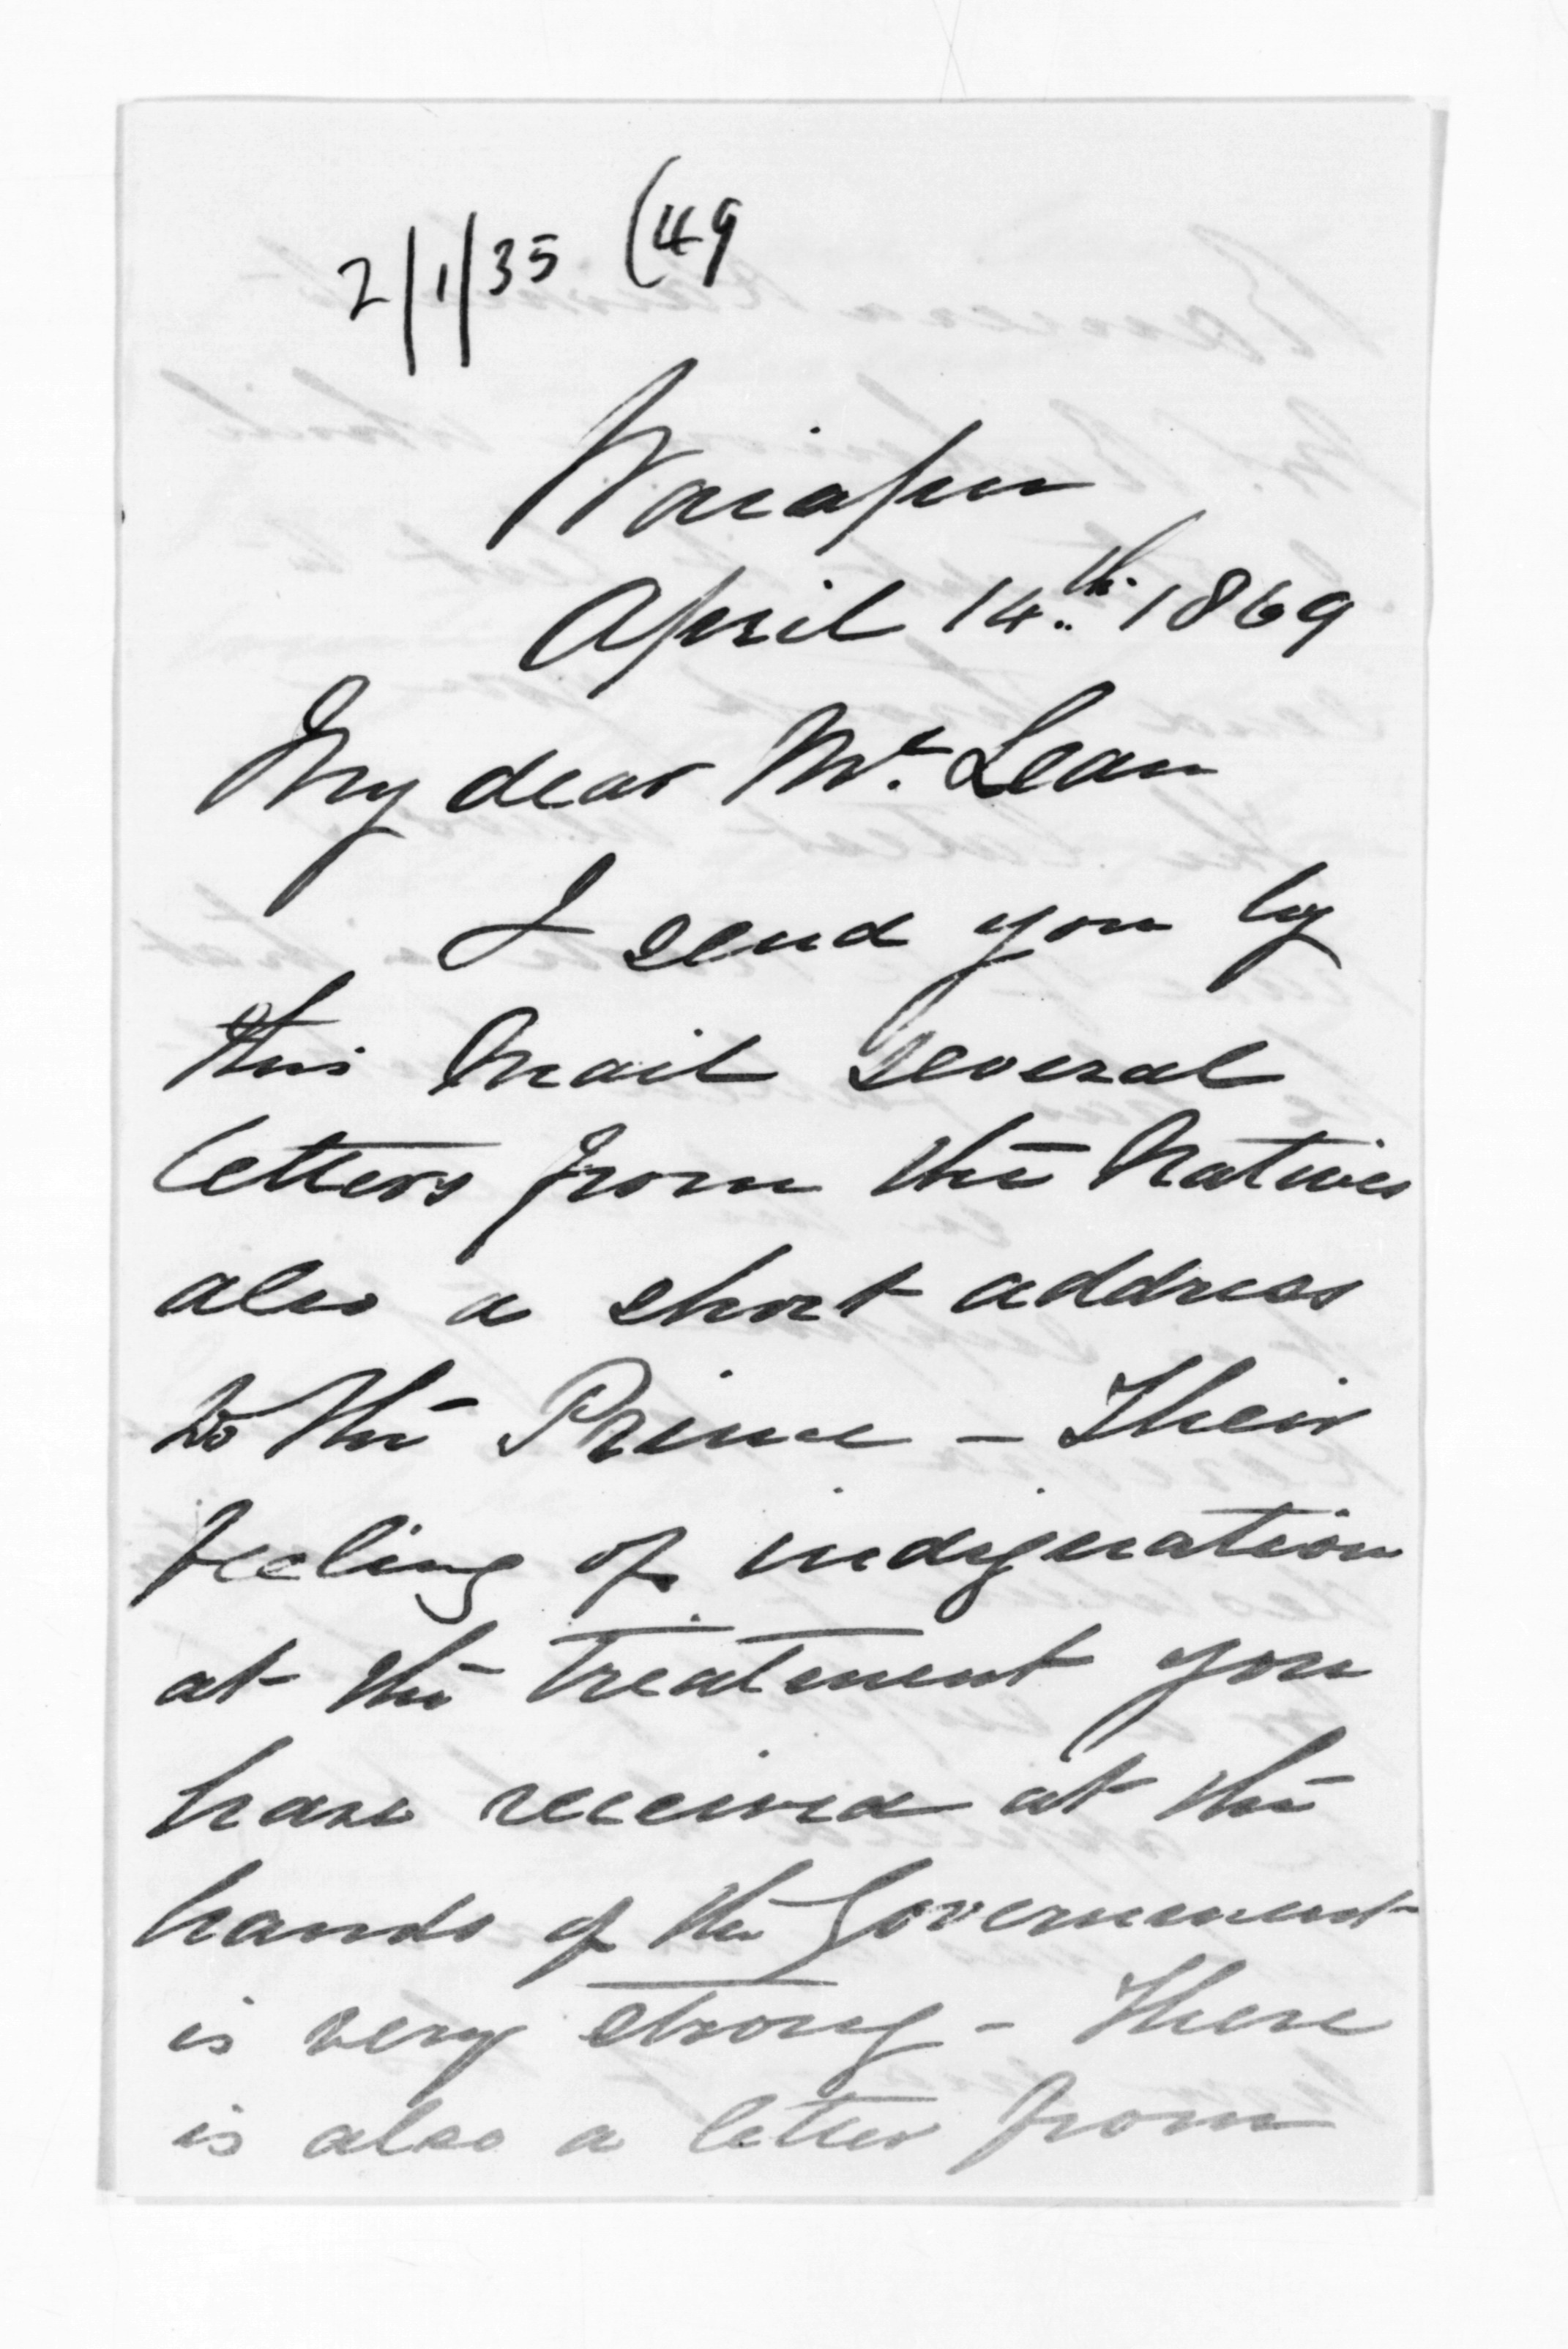 2/1/35 (49
Waiapu
April 14th. 1869
My dear Mr. Lean
I send you by
this Mail several
letters from the Natives
also a short address
to the Prince - Their
feeling of indignation
at the treatment you
have received at the
hands of the Government
is very strong - There
is also a letter from